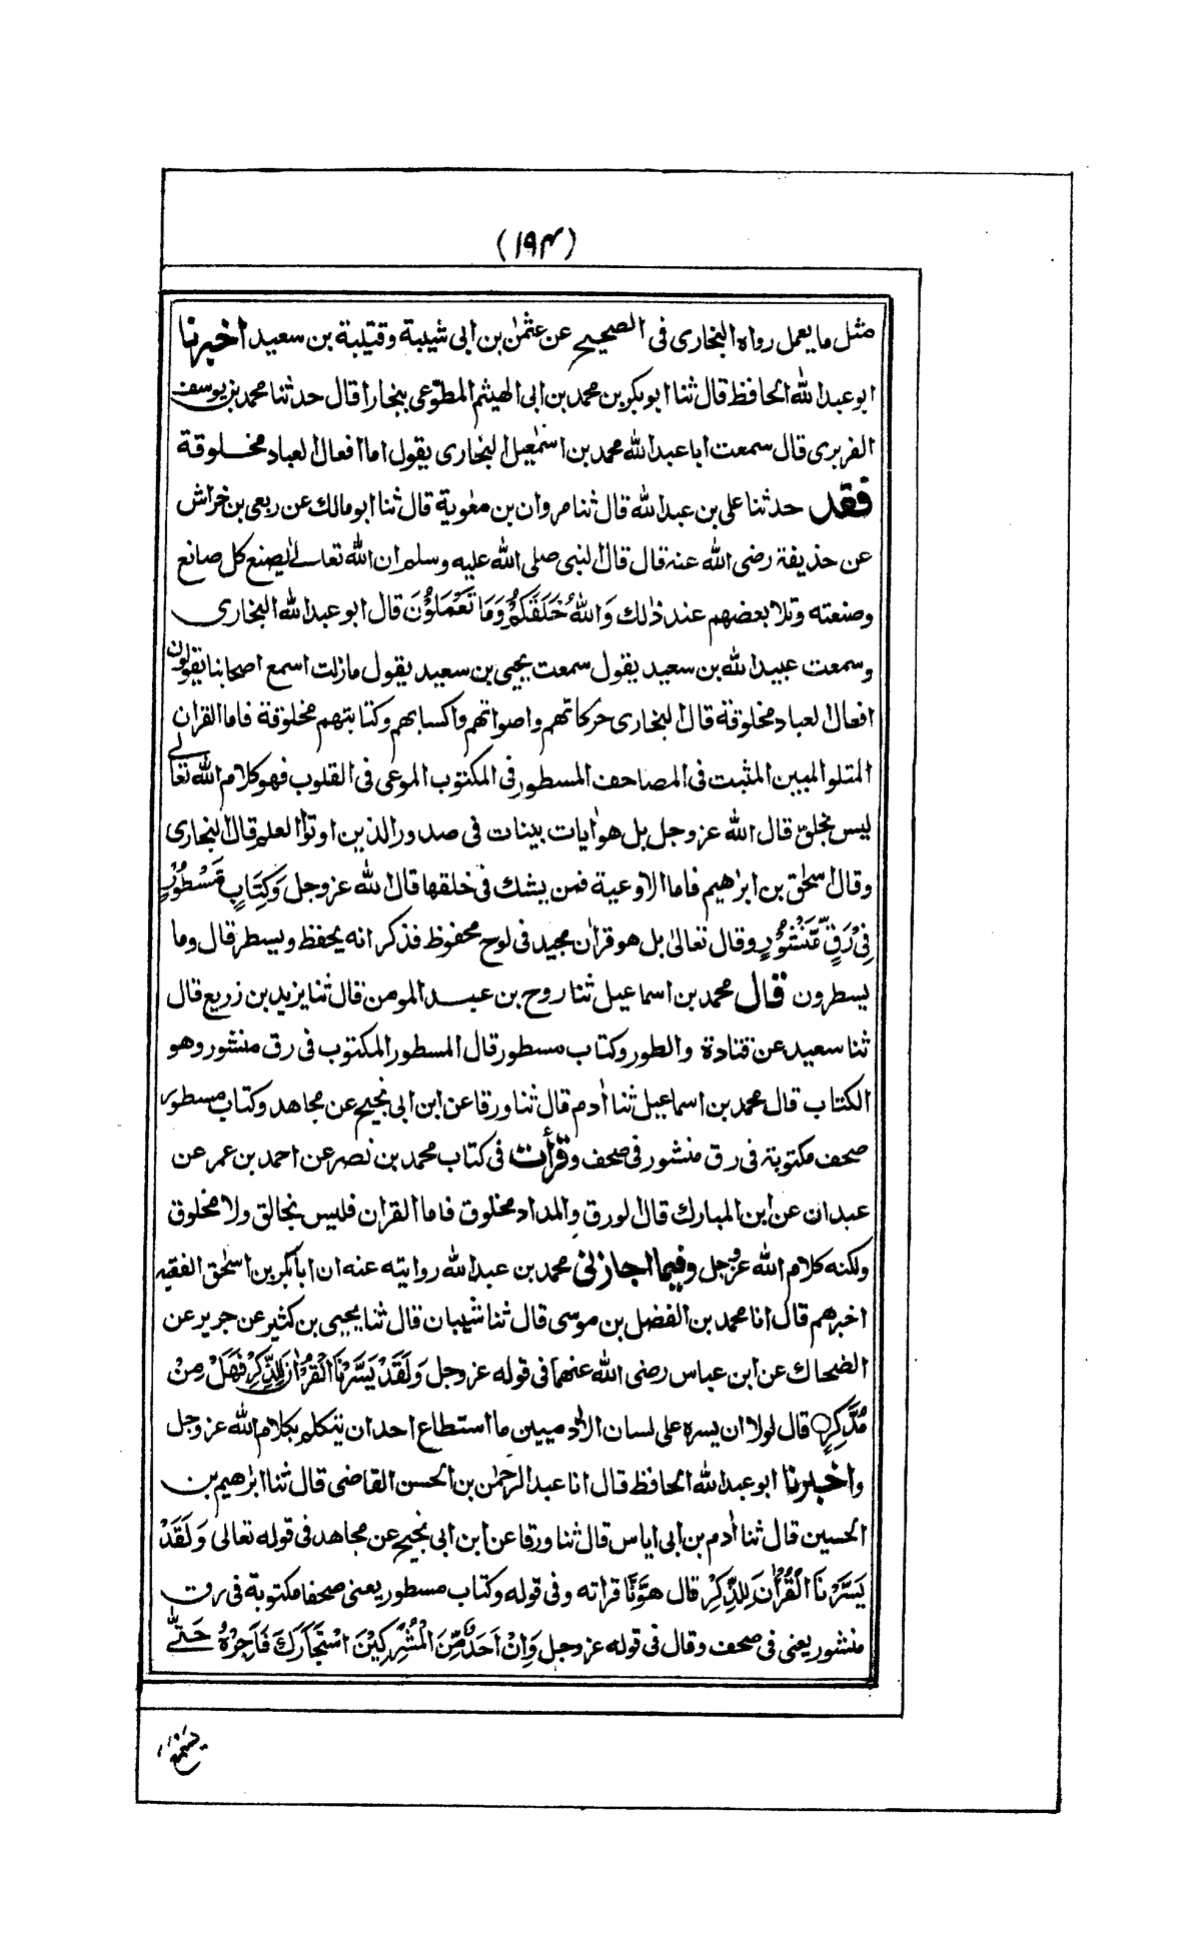 (١٩٤)
مثل ما يعمل رواه البخارى فى الصحيح عن عثمٰن بن ابى شيبة وقتيبة بن سعيد اخبرنا
ابو عبد الله الحافظ قال ثنا ابو بكر بن محمد بن ابى الهيثم المطوّعى ببخارا قال حدثنا محمد بن يوسف
الفربرى قال سمعت ابا عبد الله محمد بن اسمٰعيل البخارى يقول اما افعال العباد مخلوقة
فقد حدثنا على بن عبد الله قال ثنا مروان بن معٰوية قال ثنا ابو مالك عن ربعى بن خراش
عن حذيفة رضى الله عنه قال قال النبى صلى الله عليه وسلم ان الله تعالى يصنع كل صانع
وصنعته وتلا بعضهم عند ذٰلك وَاللهُ خَلَقَكُمْ وَمَا تَعْمَلُوْنَ قال ابو عبد الله البخارى
وسمعت عبيد الله بن سعيد يقول سمعت يحيى بن سعيد يقول ما زلت اسمع اصحابنا يقولون
افعال العباد مخلوقة قال البخارى حركاتهم واصواتهم واكسابهم وكتابتهم مخلوقة فاما القران
المتلو المبين المثبت فى المصاحف المسطور فى المكتوب الموعى فى القلوب فهو كلام الله تعالى
ليس بخلق قال الله عز وجل بل هو اٰيات بينات فى صدور الذين اوتوا العلم قال البخارى
وقال اسحٰق بن ابرٰهيم فاما الاوعية فمن يشك فى خلقها قال الله عز وجل وَكِتَابٍ مَّسْطُوْرٍ
فِىْ رَقٍّ مَّنْشُوْرٍ وقال تعالىٰ بل هو قراٰن مجيد فى لوح محفوظ فذكر انه يحفظ ويسطر قال وما
يسطرون قال محمد بن اسماعيل ثنا روح بن عبد المومن قال ثنا يزيد بن زريع قال
ثنا سعيد عن قتادة والطور وكتاب مسطور قال المسطور المكتوب فى رق منشور وهو
الكتاب قال محمد بن اسماعيل ثنا اٰدم قال ثنا ورقا عن ابن ابى نجيح عن مجاهد وكتاب مسطور
صحف مكتوبة فى رق منشور فى صحف وقرأت فى كتاب محمد بن نصر عن احمد بن عمر عن
عبدان عن ابن المبارك قال الورق والمداد مخلوق فاما القران فليس بخالق ولا مخلوق
ولكنه كلام الله عز وجل وفيما اجازلى محمد بن عبد الله روايته عنه ان ابا بكر بن اسحٰق الفقيه
اخبرهم قال انا محمد بن الفضل بن موسى قال ثنا شيبان قال ثنا يحيى بن كثير عن جرير عن
الضحاك عن ابن عباس رضى الله عنهما فى قوله عز وجل وَلَقَدْ يَسَّرْنَا الْقُرْاٰنَ لِلذِّكْرِ فَهَلْ مِنْ
مُّدَّكِرٍ قال لولا ان يسره على لسان الاٰدميين ما استطاع احد ان يتكلم بكلام الله عز وجل
واخبرنا ابو عبد الله الحافظ قال انا عبد الرحمٰن بن الحسن القاضى قال ثنا ابرٰهيم بن
الحسين قال ثنا اٰدم بن ابى اياس قال ثنا ورقا عن ابن ابى نجيح عن مجاهد فى قوله تعالى وَلَقَدْ
يَسَّرْنَا الْقُرْاٰنَ لِلذِّكْرِ قال هَوَّنَّا قراته وفى قوله وكتاب مسطور يعنى صحفا مكتوبة فى رق
منشور يعنى فى صحف وقال فى قوله عز وجل وَاِنْ اَحَدٌ مِّنَ الْمُشْرِكِيْنَ اسْتَجَارَكَ فَاَجِرْهُ حَتّٰى
يَسْمَعَ